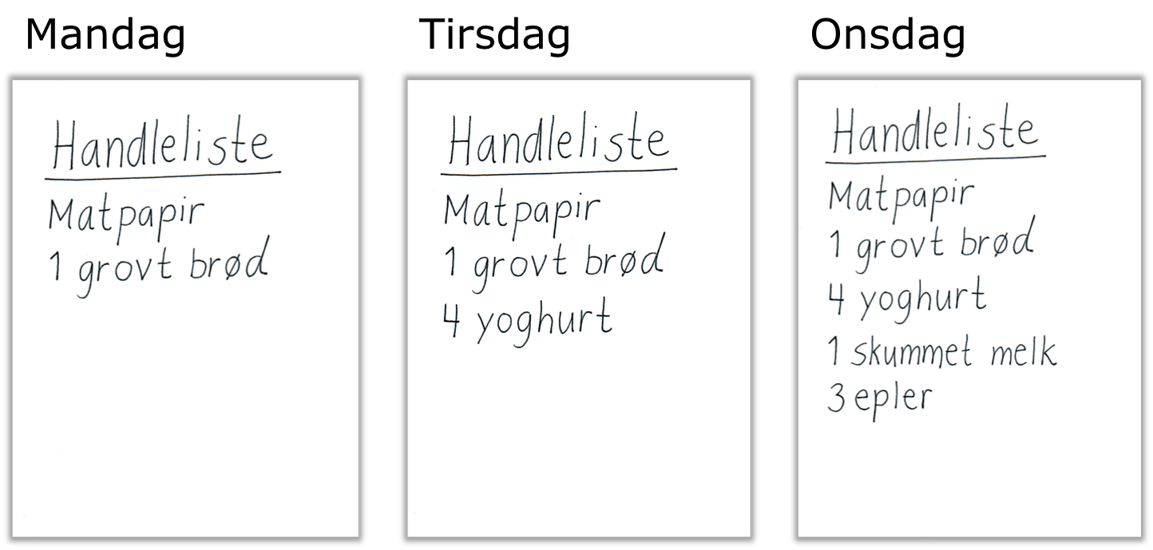 Mandag
Handleliste
Matpapir
1 grovt brød
Tirsdag
Handleliste
Matpapir
1 grovt brød
4 yoghurt
Onsdag
Handleliste
Matpapir
1 grovt brød
4 yoghurt
1 skummet melk
3 epler